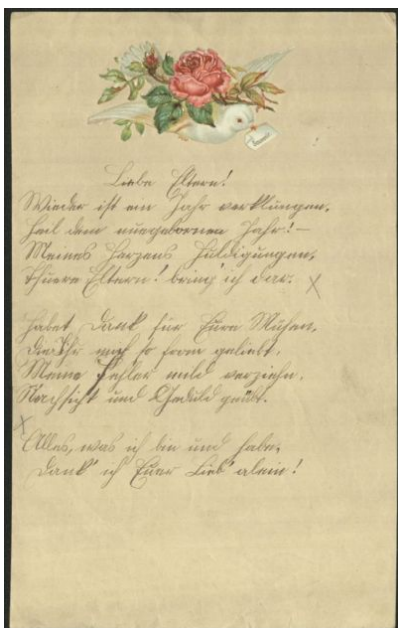 Liebe Eltern!
Wieder ist ein Jahr verklungen,
Heil dem neugebornen Jahr! –
Meines Herzens Huldigungen,
Theuere Eltern! bring' ich dar. X
Habet Dank für Eure Mühen,
Die Ihr mich so fromm geliebt,
Meine Fehler mild verziehn,
Nachsicht und Geduld geübt.
X
Alles, was ich bin und habe,
Dank' ich Eurer Lieb' alein!